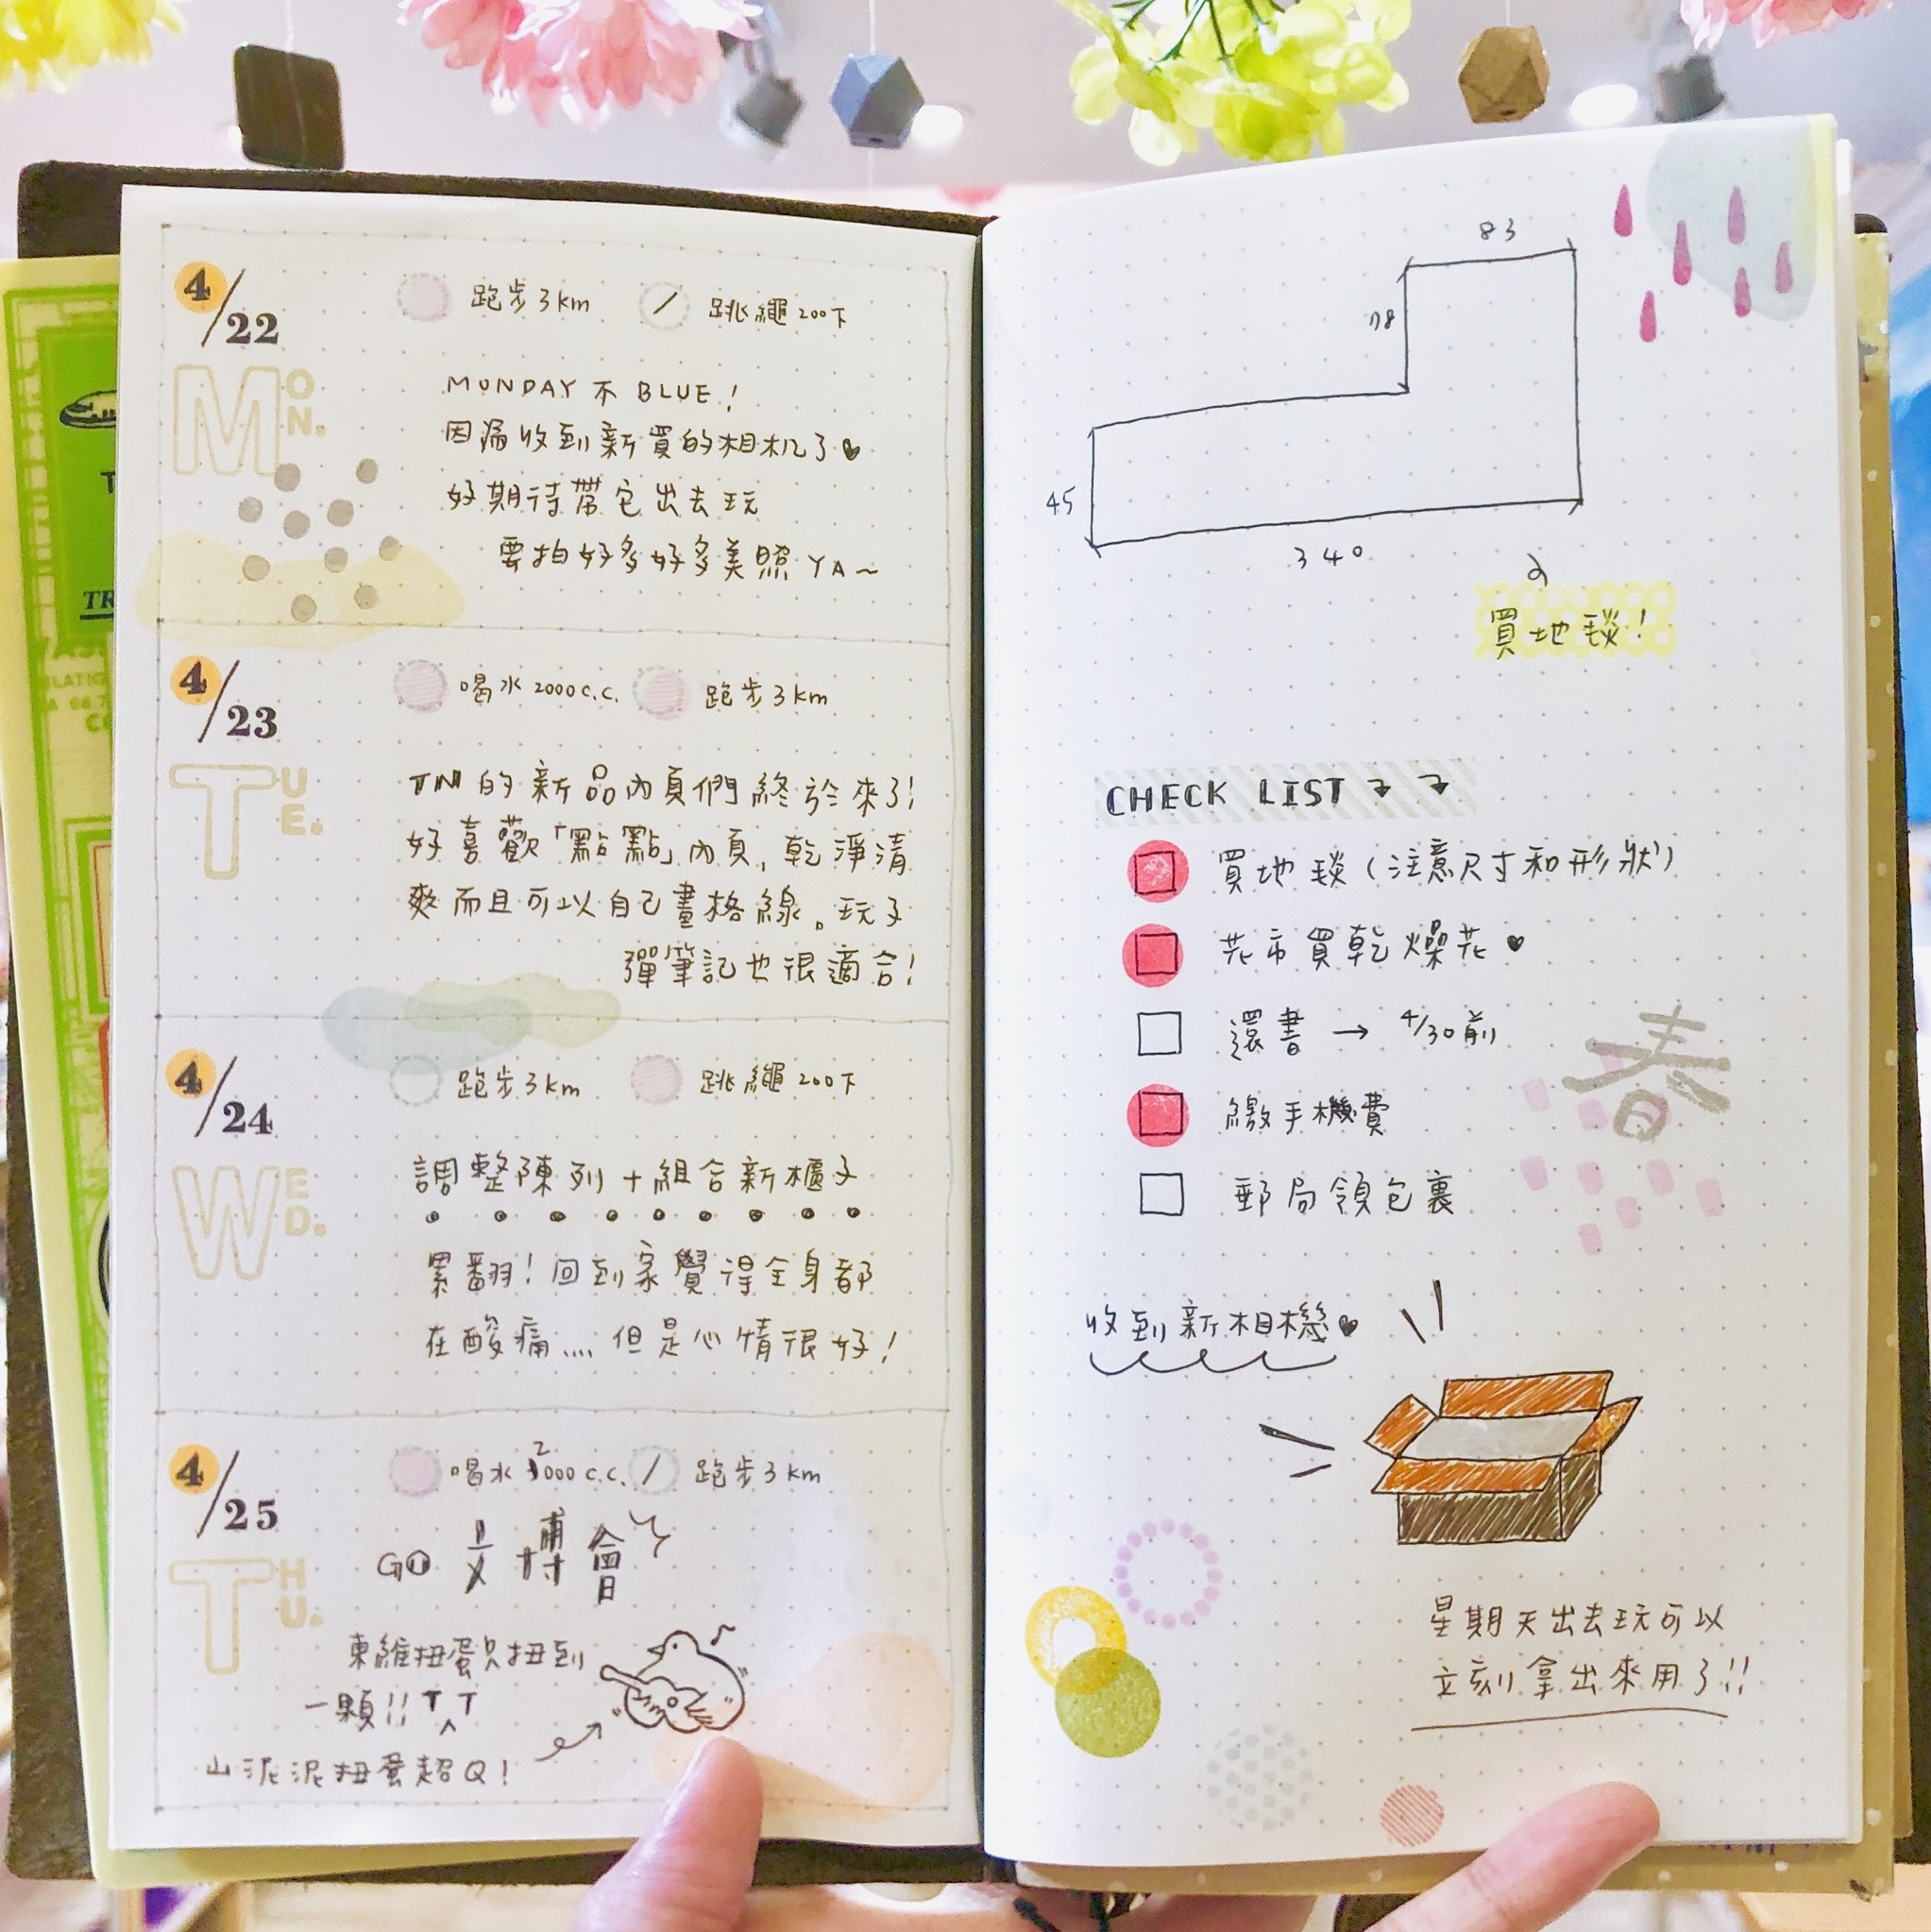 4/22
MON.
跑步3km
跳繩200下
MONDAY 不 BLUE!
因為收到新買的相机了♥
好期待帶它出去玩
要拍好多好多美照 YA～
4/23
TUE.
喝水2000c.c.
跑步3km
TN的新品內頁們終於來了!
好喜歡「點點」內頁,乾淨清
爽而且可以自己畫格線。玩子
彈筆記也很適合!
4/24
WED.
跑步3km
跳繩200下
調整陳列+組合新櫃子
累翻!回到家覺得全身都
在酸痛....但是心情很好!
4/25
THU.
喝水2000c.c.
跑步3km
GO 文博會
東維扭蛋只扭到
一顆!! T^T
山泥泥扭蛋超Q!
83
78
45
340
買地毯!
CHECK LIST
買地毯(注意尺寸和形狀)
花市買乾燥花♥
還書 → 4/30前
繳手機費
郵局領包裹
春
收到新相機♥
星期天出去玩可以
立刻拿出來用了!!